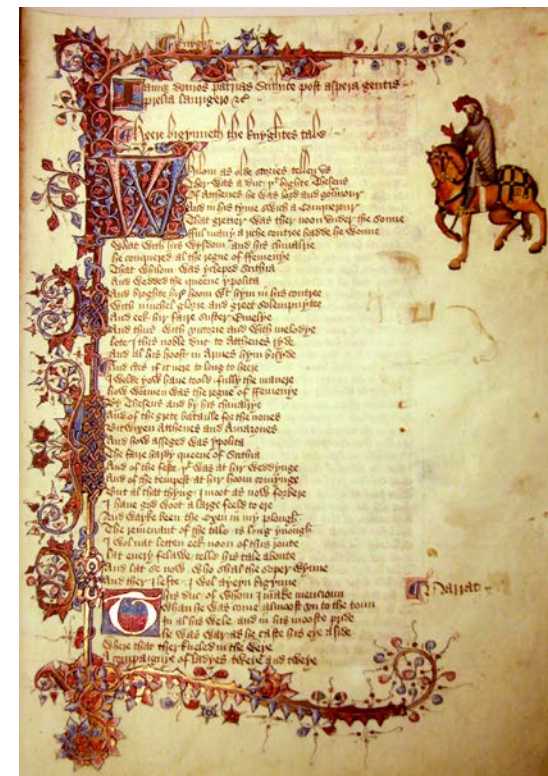 Knyght
Iamque domos patrias Scithice post aspera gentis
prelia laurigero &c
Heere bigynneth the knyghtes tale
Whilom as olde stories tellen vs
Ther was a duc þt highte Theseus
Of Atthenes he was lord and gouernour
And in his tyme swich a Conquerour
That gretter was ther noon vnder the sonne
fful many a riche contree hadde he wonne
What with his wysdom and his chiualrie
he conquered al the regne of ffemenye
That whilom was ycleped Scithia
And wedded the queene ypolita
And broghte hir hoom wt hym in his contree
With muchel glorie and greet solempnytee
And eek hir faire suster Emelye
And thus with victorie and with melodye
lete I this noble duc to Atthenes ryde
And al his hoost in Armes hym bisyde
And certes if it nere to long to heere
I wolde yow haue toold fully the manere
how wonnen was the regne of ffemenye
By Theseus and by his chiualrye
And of the grete bataille for the nones
Bitwixen Atthenes and Amazones
And how asseged was ypolita
The faire hardy queene of Scithia
And of the feste þt was at hir weddynge
And of the tempest at hir hoom comynge
But al that thyng I moot as now forbere
I haue god woot a large feeld to ere
And wayke been the oxen in my plough
The remenant of the tale is long ynough
I wol nat letten eek noon of this route
lat euery felawe telle his tale aboute
And lat se now who shal the soper wynne
And ther I lefte I wol ayeyn bigynne
This duc of whom I make mencioun
Whan he was come almoost vn to the toun
In al his wele and in his mooste pride
he was war as he caste his eye aside
Where that ther kneled in the weye
A compaignye of ladyes tweye and tweye
Narrat